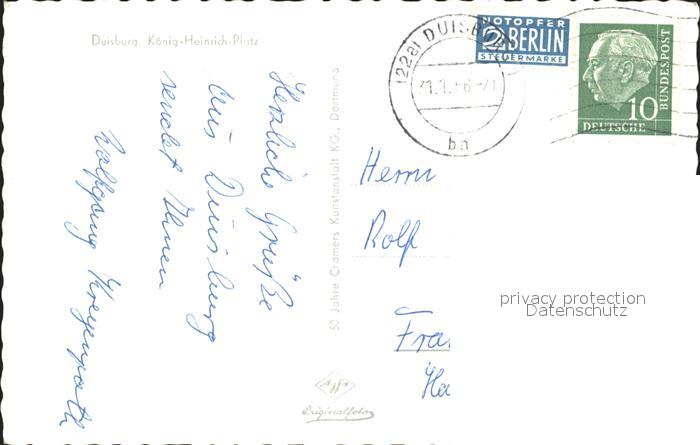 Duisburg, König-Heinrich-Platz
Herzliche Grüße
aus Duisburg
sendet Ihnen
Wolfgang
50 Jahre Cramers Kunstanstalt KG., Dortmund
Agfa
Originalfoto
(22a) DUISBURG
ba
NOTOPFER
2 BERLIN
STEUERMARKE
10
DEUTSCHE
BUNDESPOST
Herrn
Rolf
Fra
Ha
privacy protection
Datenschutz